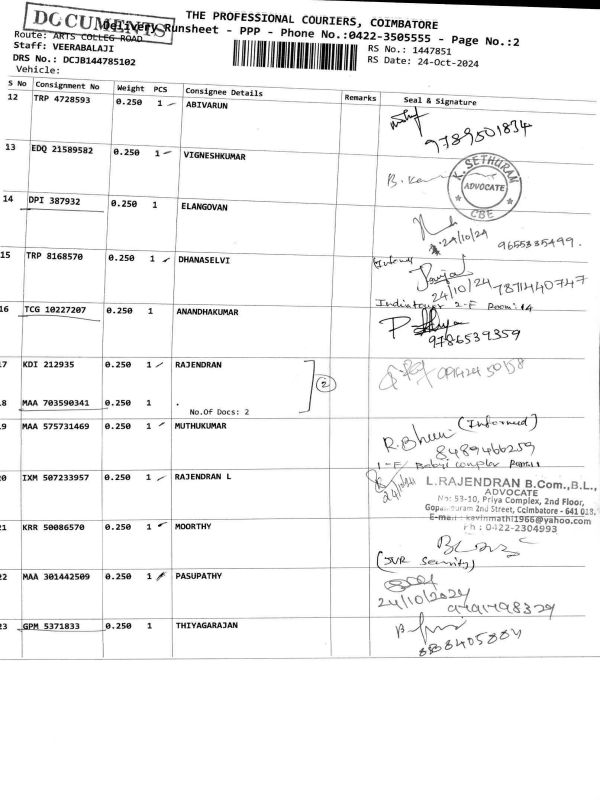 DOCUMENTS
THE PROFESSIONAL COURIERS, COIMBATORE
Delivery Runsheet - PPP - Phone No.:0422-3505555 - Page No.:2
Route: ARTS COLLEG ROAD
Staff: VEERABALAJI
RS No.: 1447851
DRS No.: DCJB144785102
RS Date: 24-Oct-2024
Vehicle:
S No Consignment No Weight PCS Consignee Details Remarks Seal & Signature
12 TRP 4728593 0.250 1 ABIVARUN
9789501834
13 EDQ 21589582 0.250 1 VIGNESHKUMAR
K. SETHURAM
ADVOCATE
CBE
14 DPI 387932 0.250 1 ELANGOVAN
24/10/24
9655335499.
15 TRP 8168570 0.250 1 DHANASELVI
24/10/24 7871440747
2-F Room: 14
16 TCG 10227207 0.250 1 ANANDHAKUMAR
9786539359
17 KDI 212935 0.250 1 RAJENDRAN
2
18 MAA 703590341 0.250 1 .
No.Of Docs: 2
19 MAA 575731469 0.250 1 MUTHUKUMAR
(Informed)
8489466259
20 IXM 507233957 0.250 1 RAJENDRAN L
L.RAJENDRAN B.Com.,B.L.,
ADVOCATE
No: 53-10, Priya Complex, 2nd Floor,
Gopalapuram 2nd Street, Coimbatore - 641 018.
E-mail : kavinmathi1966@yahoo.com
Ph : 0422-2304993
21 KRR 50086570 0.250 1 MOORTHY
(SVR Security)
22 MAA 301442509 0.250 1 PASUPATHY
24/10/2024
9791798329
23 GPM 5371833 0.250 1 THIYAGARAJAN
8883405884